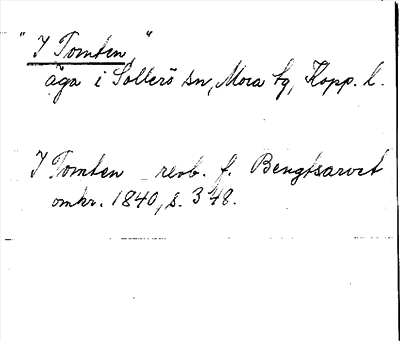 "I Tomten"
äga i Sollerö sn, Mora tg, Kopp. l.
I Tomten - revb. f. Bengtsarvet
omkr. 1840, s. 348.